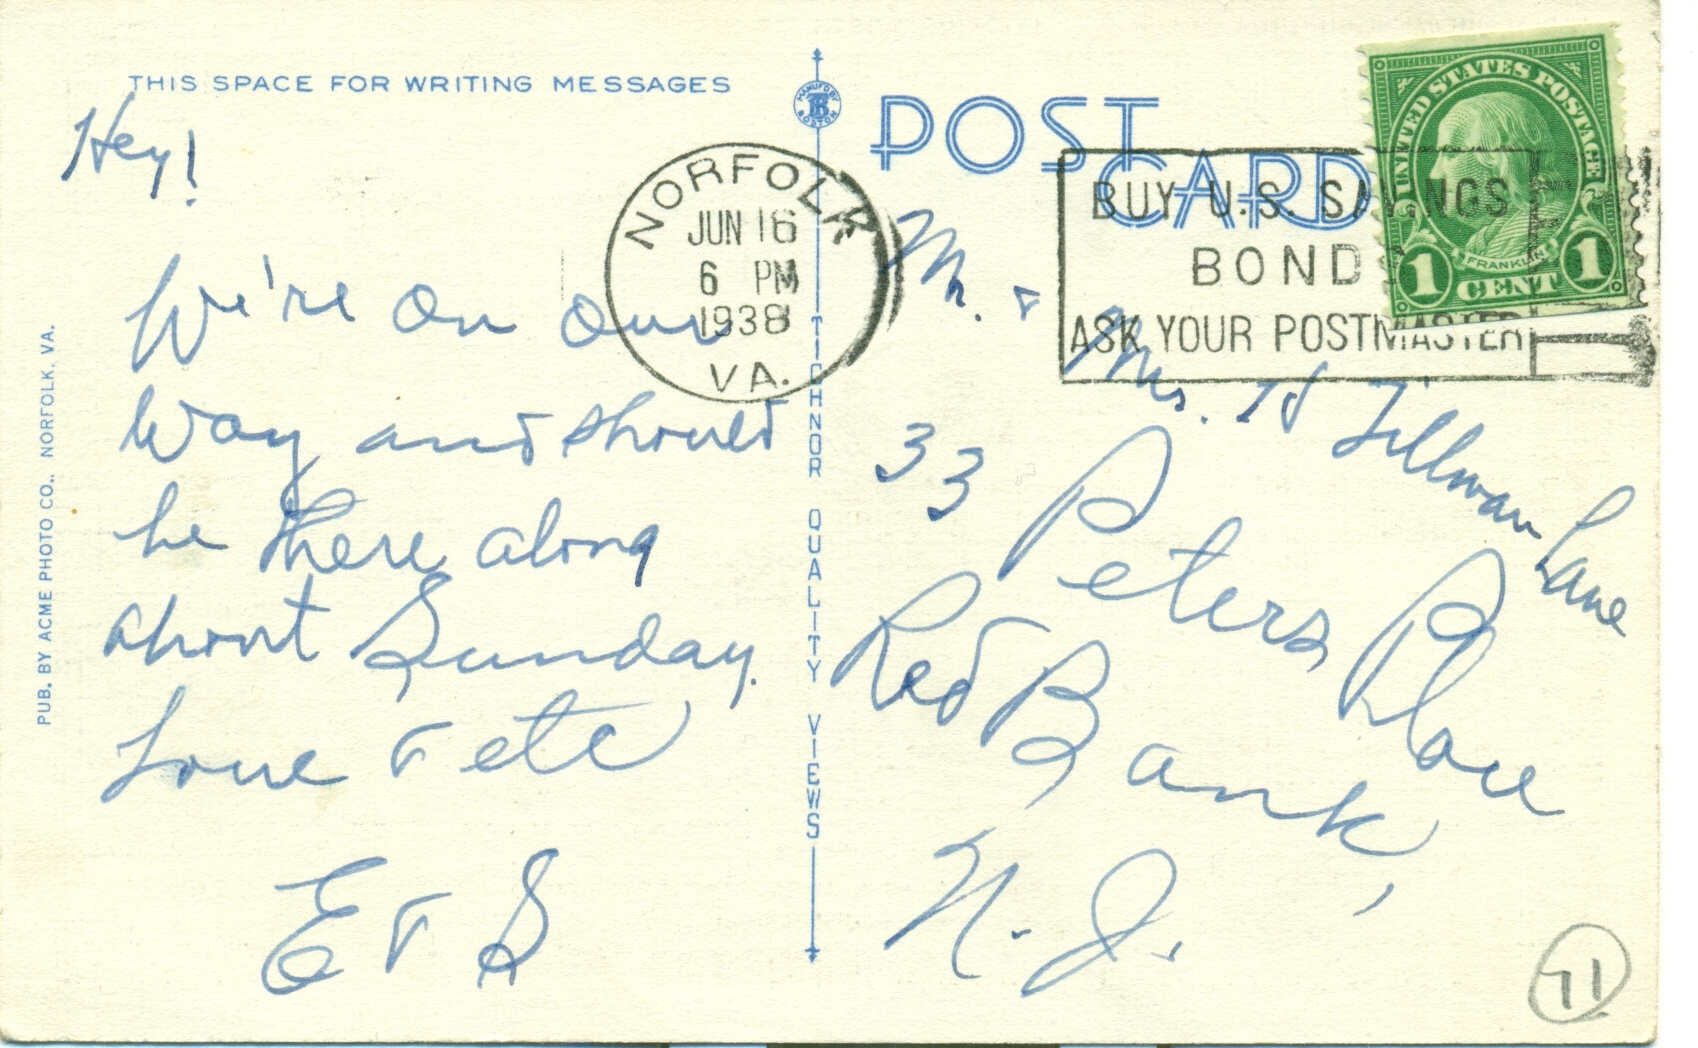 THIS SPACE FOR WRITING MESSAGES
Hey!
We're on our
way and should
be there along
about Sunday.
Love & etc
E & S
PUB. BY ACME PHOTO CO., NORFOLK, VA.
MANUFD BY
TB
BOSTON
TICHNOR QUALITY VIEWS
NORFOLK
JUN 16
6 PM
1938
VA.
POST
CARD
BUY U.S. SAVINGS
BOND
ASK YOUR POSTMASTER
UNITED STATES POSTAGE
FRANKLIN
1 CENT 1
M. &
Mrs. H Tillman Lane
33 Peters Place
Red Bank,
N.J.
71